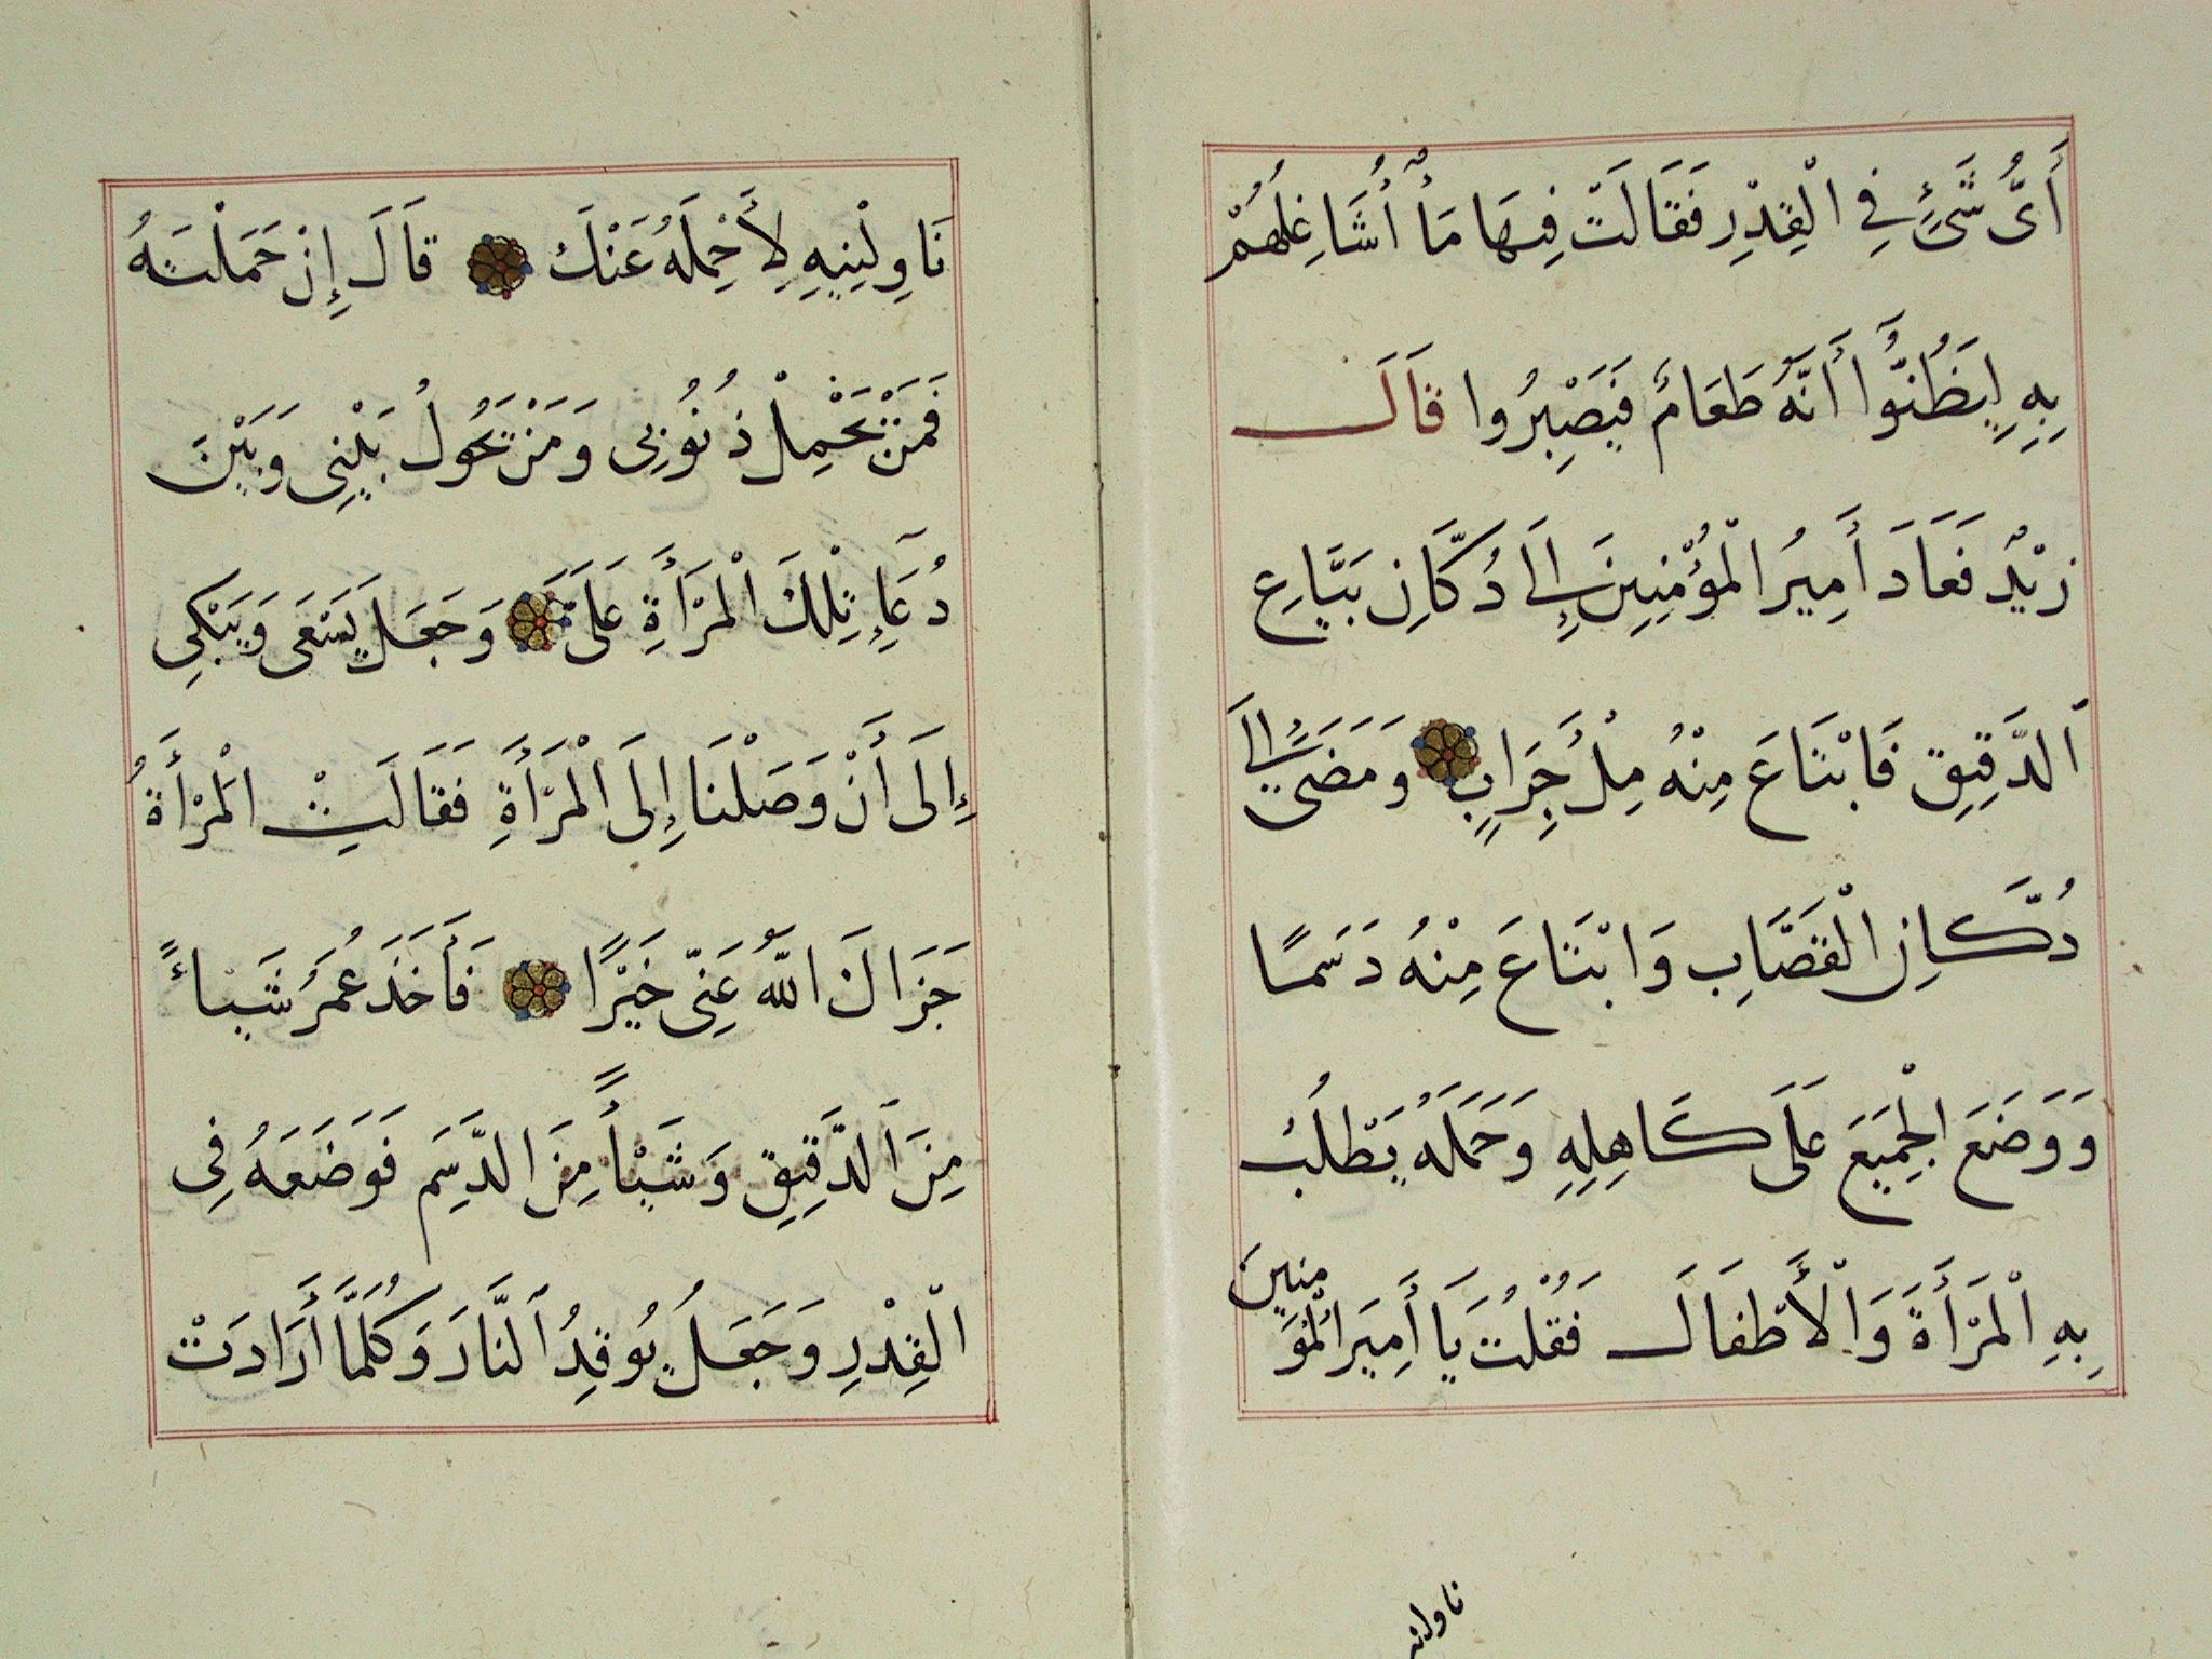 أَىُّ شَىْءٍ فِى الْقِدْرِ فَقَالَتْ فِيهَا مَأْ أُشَاغِلُهُمْ
بِهِ لِيَظُنُّوا أَنَّهُ طَعَامٌ فَيَصْبِرُوا قَالَ
زَيْدٌ فَعَادَ أَمِيرُ الْمُؤْمِنِينَ إِلَى دُكَّانِ بَيَّاعِ
الدَّقِيقِ فَابْتَاعَ مِنْهُ مِلْءَ جِرَابٍ وَمَضَى إِلَى
دُكَّانِ الْقَصَّابِ وَابْتَاعَ مِنْهُ دَسَمًا
وَوَضَعَ الْجَمِيعَ عَلَى كَاهِلِهِ وَحَمَلَهُ يَطْلُبُ
بِهِ الْمَرْأَةَ وَالْأَطْفَالَ فَقُلْتُ يَا أَمِيرَ الْمُؤْمِنِينَ
ناولنيه
نَاوِلْنِيهِ لِأَحْمِلَهُ عَنْكَ قَالَ إِنْ حَمَلْتَهُ
فَمَنْ يَحْمِلْ ذُنُوبِى وَمَنْ يَحُولُ بَيْنِى وَبَيْنَ
دُعَآءِ تِلْكَ الْمَرْأَةِ عَلَىَّ وَجَعَلَ يَسْعَى وَيَبْكِى
إِلَى أَنْ وَصَلْنَا إِلَى الْمَرْأَةِ فَقَالَتِ الْمَرْأَةُ
جَزَاكَ اللَّهُ عَنِّى خَيْرًا فَأَخَذَ عُمَرُ شَيْاءً
مِنَ الدَّقِيقِ وَشَيْأً مِنَ الدَّسِمِ فَوَضَعَهُ فِى
الْقِدْرِ وَجَعَلَ يُوقِدُ النَّارَ وَكُلَّمَا أَرَادَتْ